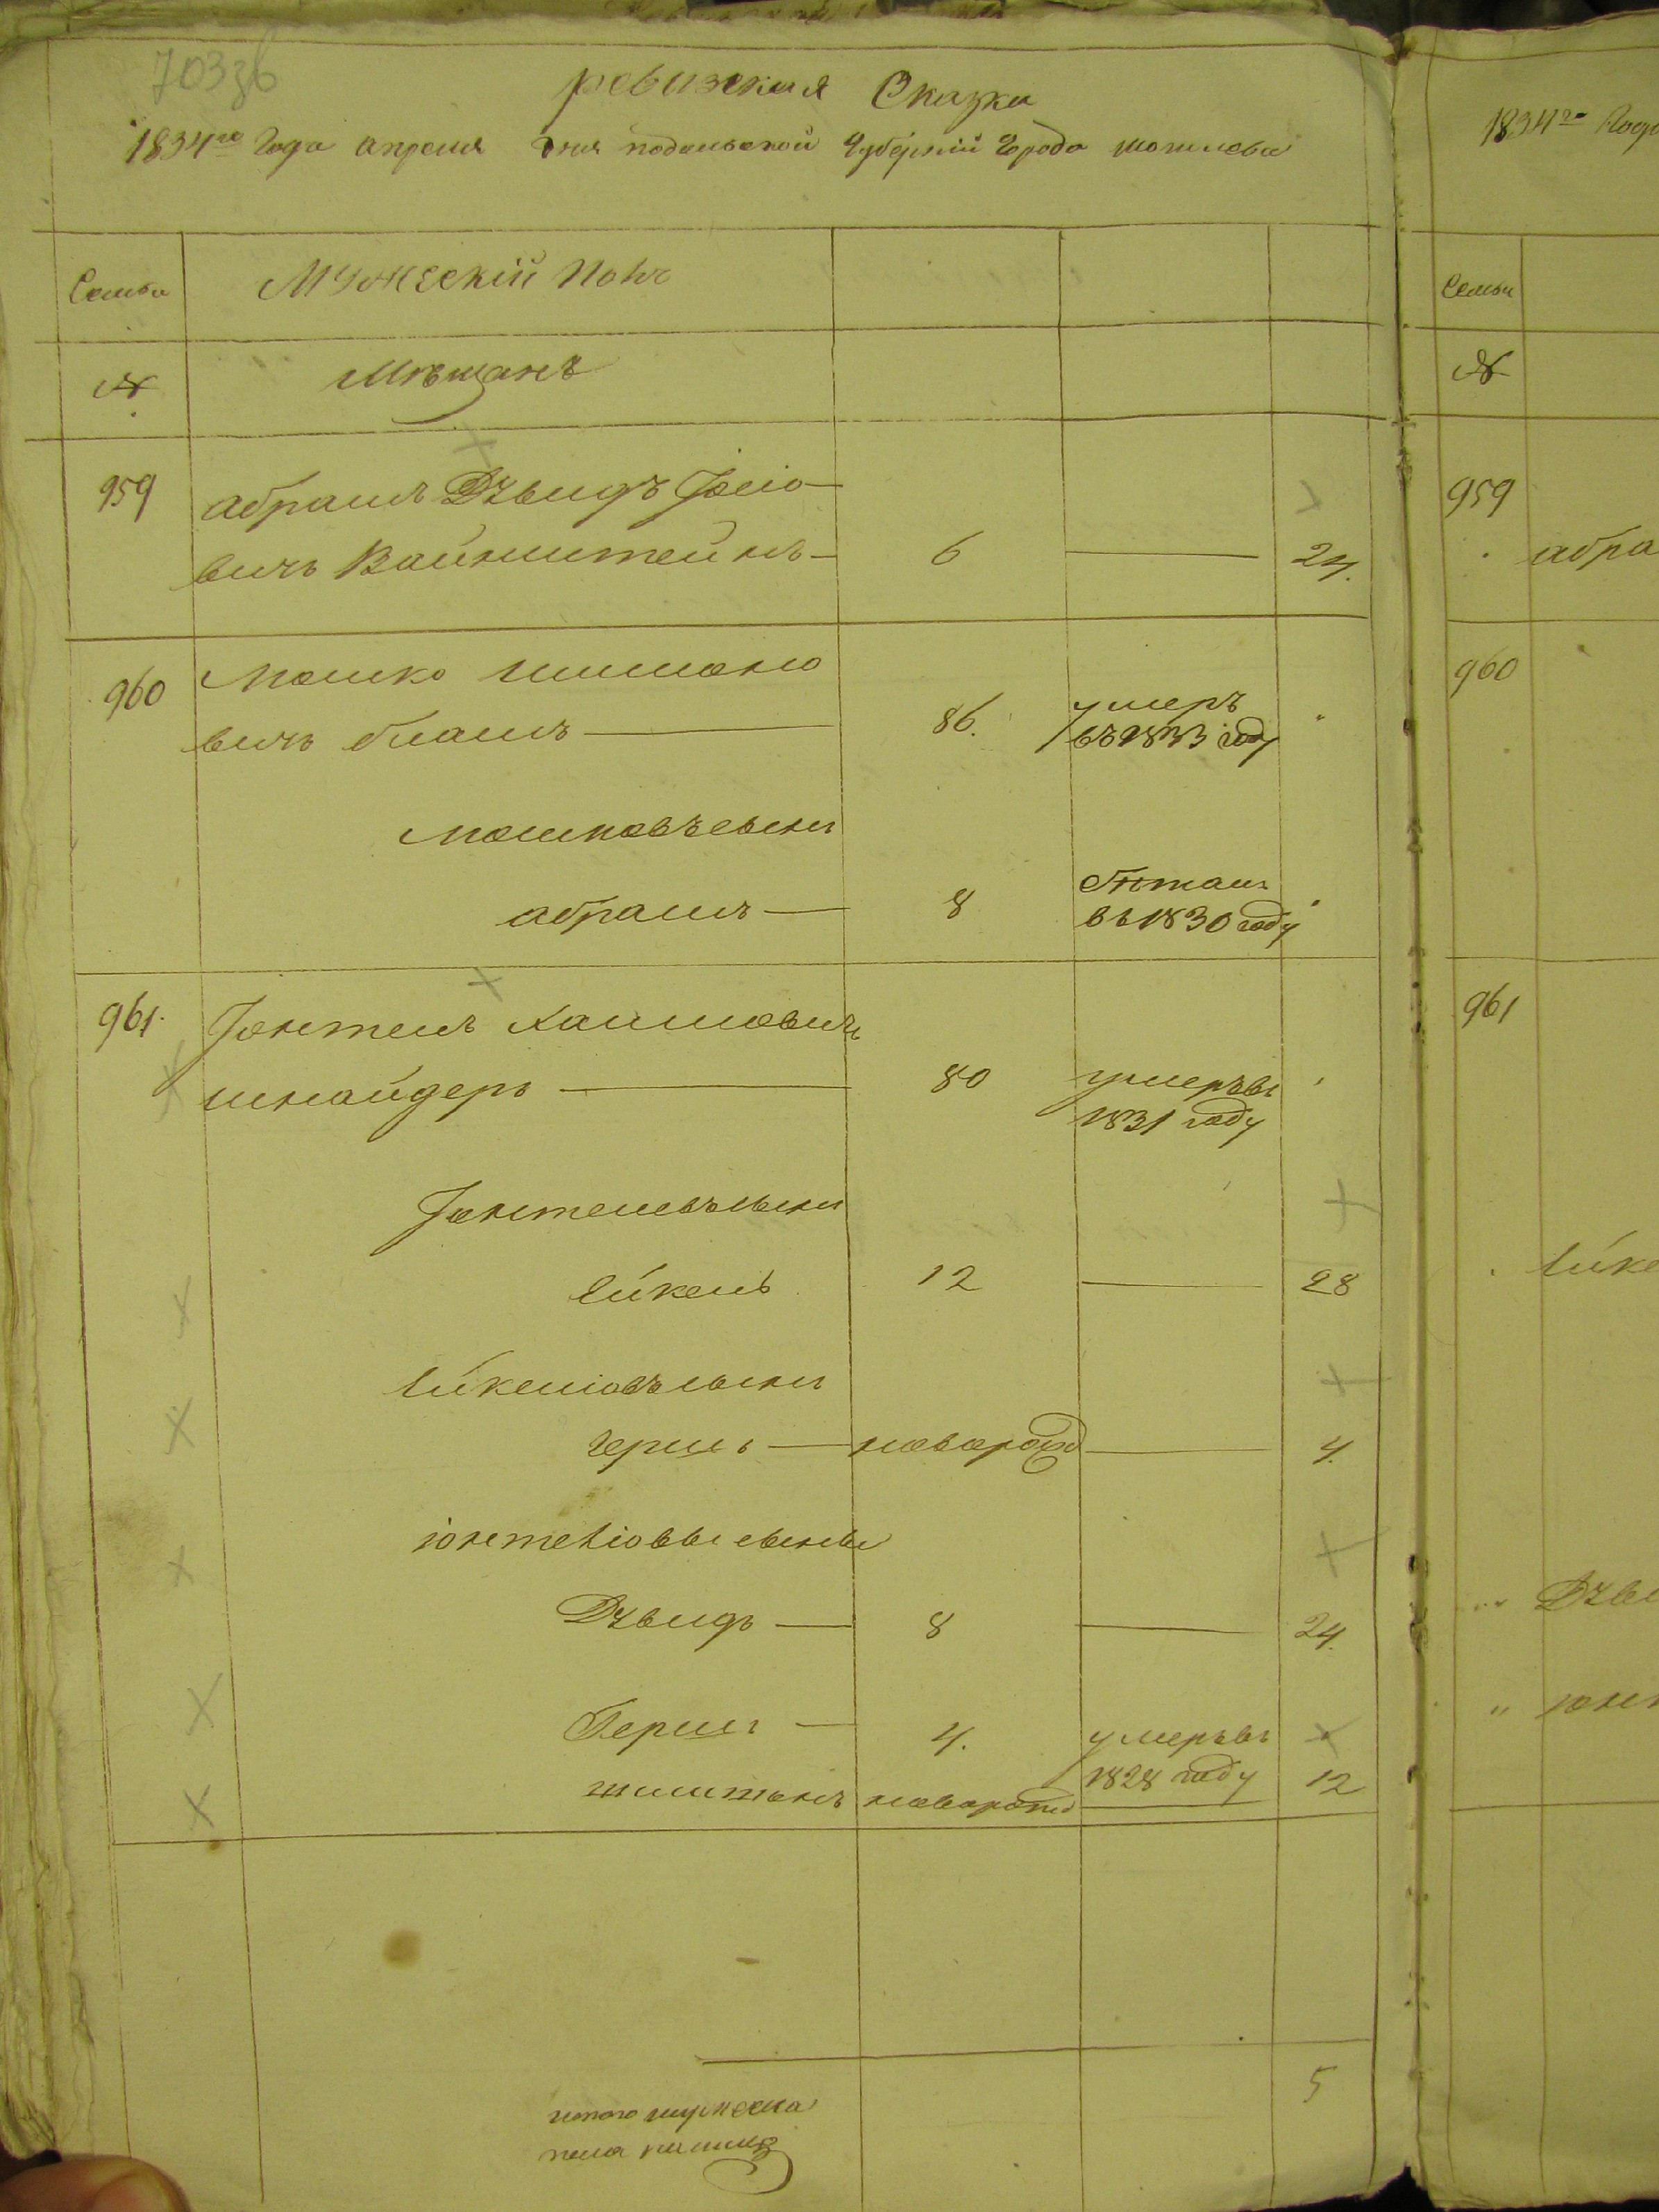 703зв
ревизская Сказка
1834го Года апреля дня подольской Губернии Города могилева
Семьи
Мужескій Полъ
№
Мѣщанъ
959
абрамъ Дувидъ Іосіо-
вичъ Вайнштейнъ
6
24.
960
Мошко шимоно
вичъ блашъ
86.
умеръ
въ 1833 году
Мошковъ сынъ
абрамъ
8
въ 1830 году
961.
Іонтель Хаимовичъ
шнайдеръ
80
умеръ въ
1831 году
Іонтелевъ сынъ
Ейкель
12
28
Ейкеліовъ сынъ
гершъ
новорожд
4.
іонтеліовы сыновья
Дувидъ
8
24.
Гершъ
4.
умеръ въ
1828 году
новорожд
12
5
итого мужеска
пола налицо
1834го Года
Семьи
№
959
абра
960
961
Ейке
Дув
іонт